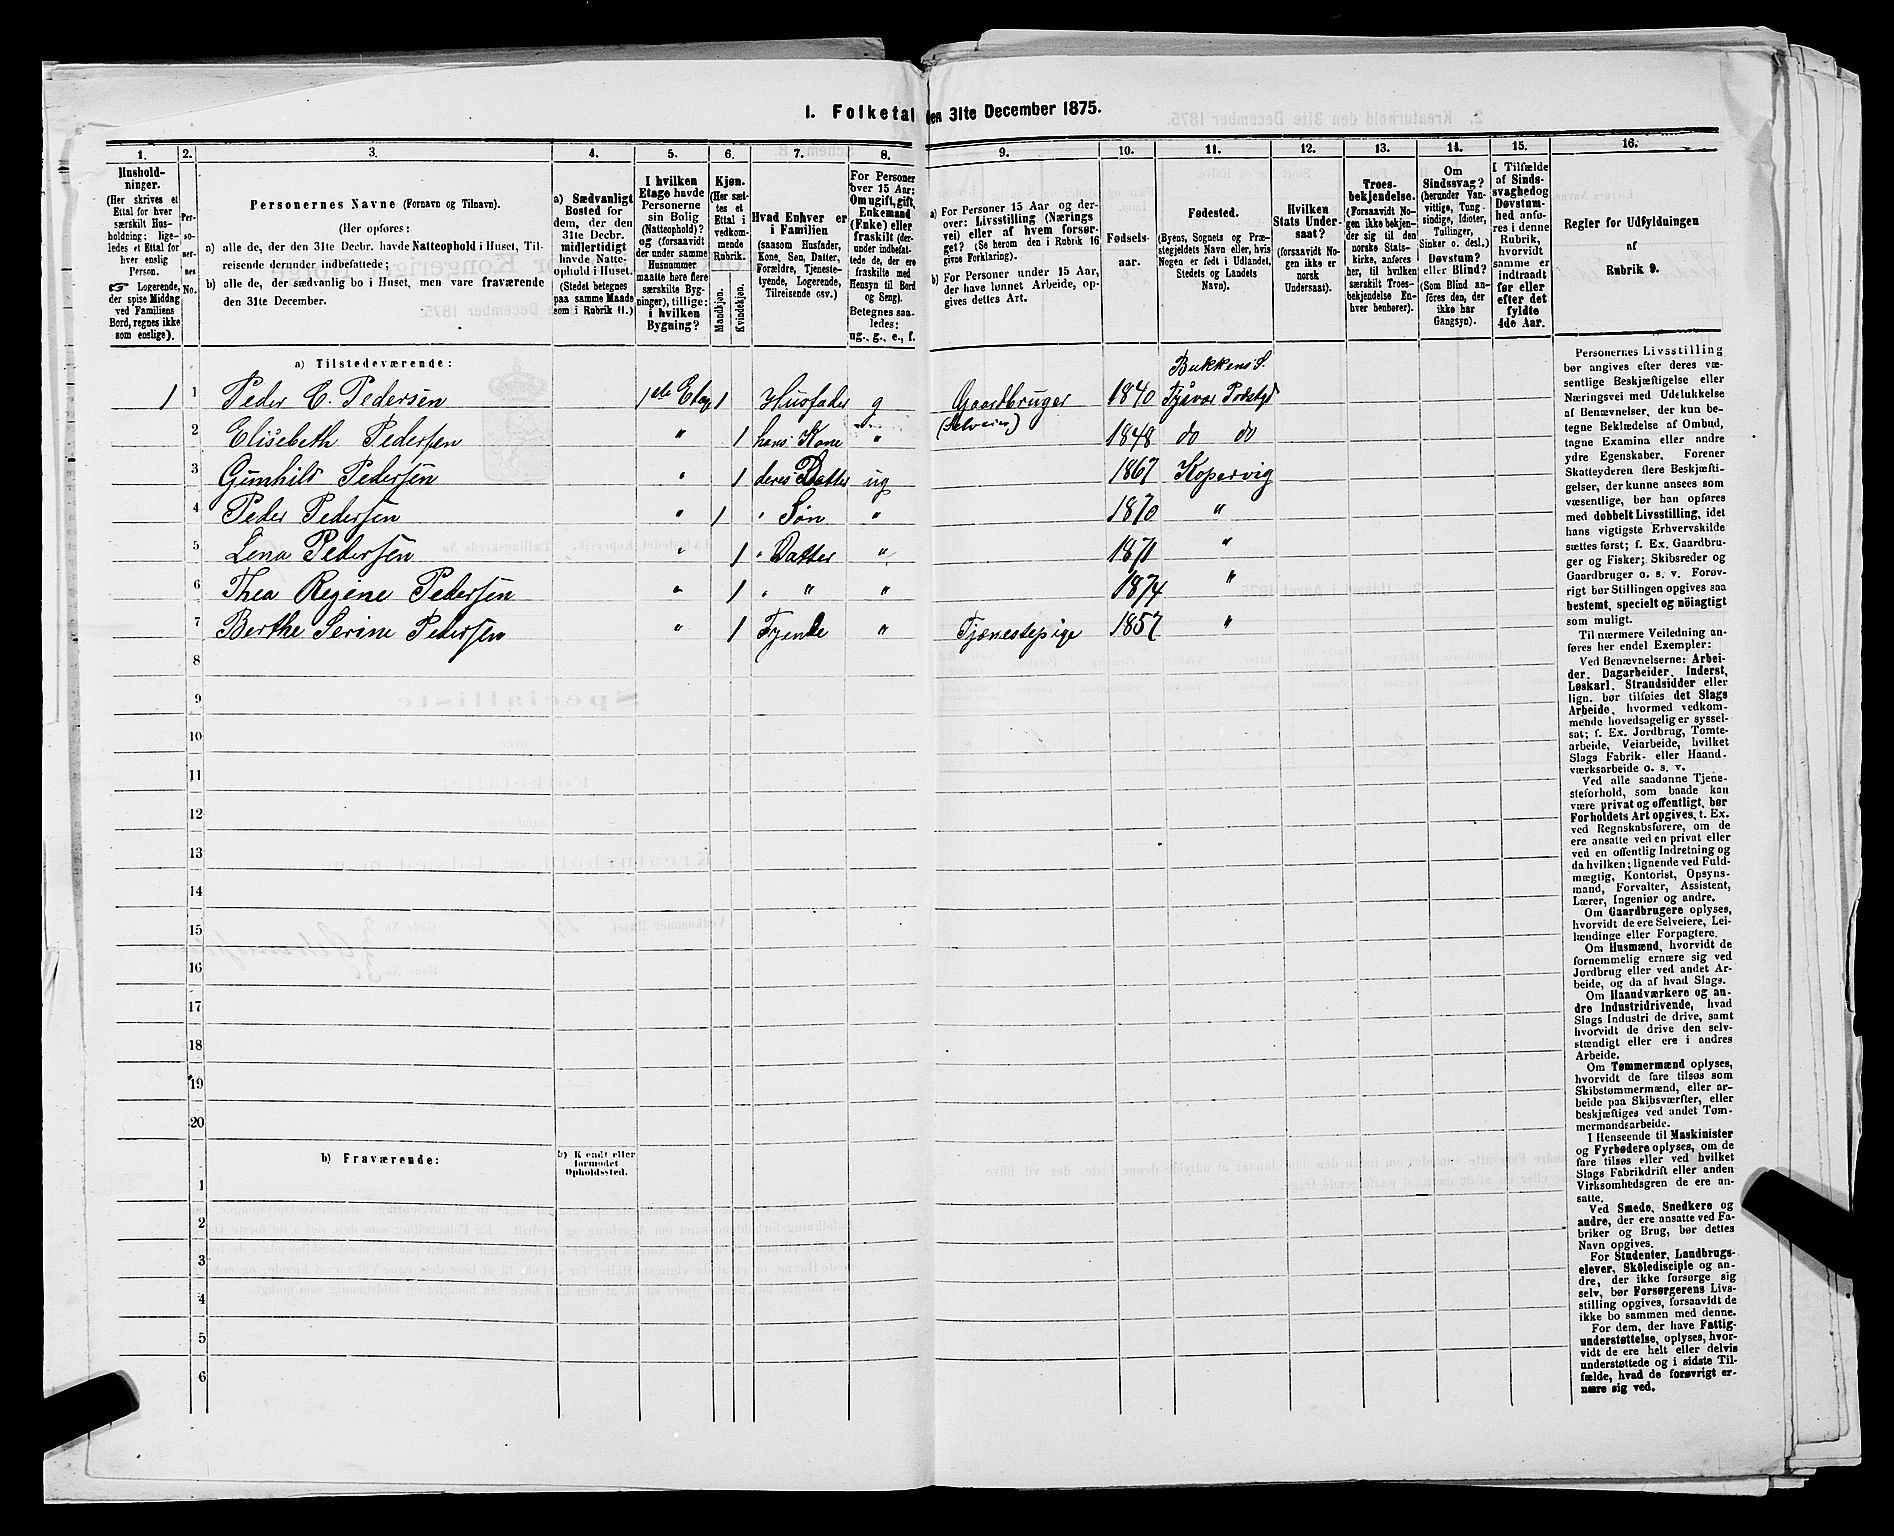 1. Folketal den 31te December 1875.
1. 2. 3. 4. 5. 6. 7. 8. 9. 10. 11. 12. 13. 14. 15. 16.
Husholdninger.
(Her skrives et
Ettal for hver
særskilt Husholdning;
ligeledes et Ettal for
hver enslig
Person.
Logerende,
der spise Middag
ved Familiens
Bord, regnes ikke
som enslige).
Personernes No.
Personernes Navne (Fornavn og Tilnavn).
(Her opføres:
a) alle de, der den 31te Decbr. havde Natteophold i Huset, Tilreisende derunder indbefattede;
b) alle de, der sædvanlig bo i Huset, men vare fraværende
den 31te December.
a) Sædvanligt
Bosted for
dem, der den
31te Decbr.
midlertidigt
havde Natteophold i Huset.
(Stedet betegnes
paa samme Maade
som i Rubrik 11.)
I hvilken
Etage havde
Personerne
sin Bolig
(Natteophold)?
og (forsaavidt
der under samme
Husnummer
maatte høre flere
særskilte Bygninger), tillige:
i hvilken
Bygning?
Kjøn.
(Her sættes et
Ettal i
vedkommende
Rubrik.
Mandkjøn.
Kvindekjøn.
Hvad Enhver er
i Familien
(saasom Husfader,
Kone, Søn, Datter,
Forældre, Tjenestetyende, Logerende,
Tilreisende osv.)
For Personer
over 15 Aar:
Om ugift, gift,
Enkemand
(Enke) eller
fraskilt (derunder indbefattede de, der ere
fraskilte med
Hensyn til Bord
og Seng).
Betegnes saaledes:
ug., g., e., f.
a) For Personer 15 Aar og derover: Livsstilling (Næringsvei) eller af hvem forsørget? (Se herom den i Rubrik 16
givne Forklaring).
b) For Personer under 15 Aar,
der have lønnet Arbeide, opgives dettes Art.
Fødselsaar.
Fødested.
(Byens, Sognets og Præstegjeldets Navn eller, hvis
Nogen er født i Udlandet,
Stedets og Landets
Navn).
Hvilken
Stats Undersaat?
(forsaavidt Nogen ikke er
norsk
Undersaat).
Troesbekjendelse.
(Forsaavidt Nogen ikke bekjender sig til den
norske Statskirke, anføres
her, til hvilken
særskilt Troesbekjendelse Enhver henhører).
Om
Sindssvag?
(herunder Vanvittige, Tungsindige, Idioter,
Tullinger,
Sinker o. desl.)
Døvstum?
eller Blind?
(Som Blind anføres den, der
ikke har
Gangsyn).
I Tilfælde
af Sindssvaghed og
Døvstumhed anføres i denne
Rubrik,
hvorvidt
samme er
indtraadt
før eller
efter det
fyldte
4de Aar.
Regler for Udfyldningen
af
Rubrik 9.
a) Tilstedeværende:
Bukkens S.
1 1 Peder C. Pedersen 1ste Etage 1 Husfader g Gaardbruger 1840 Tysvær Prdstgd
(Selveier)
2 Elisebeth Pedersen " 1 hans Kone " 1848 do do
3 Gunhild Pedersen " 1 deres Datter ug 1867 Kopervig
4 Peder Pedersen " 1 " Søn " 1870 "
5 Lena Pedersen " 1 " Datter " 1871 "
6 Thea Regine Pedersen " 1 " " " 1874 "
7 Berthe Serine Pedersen " 1 Tyende " Tjænestepige 1857 "
8
9
10
11
12
13
14
15
16
17
18
19
20
b) Fraværende:
b) Kjendt eller
formodet
Opholdssted.
1
2
3
4
5
6
Personernes Livsstilling
bør angives efter deres væsentlige Beskjæftigelse eller
Næringsvei med Udelukkelse
af Benævnelser, der kun betegne Beklædelse af Ombud,
tagne Examina eller andre
ydre Egenskaber. Forener
Skatteyderen flere Beskjæftigelser, der kunne ansees som
væsentlige, bør han opføres
med dobbelt Livsstilling, idet
hans vigtigste Erhvervskilde
sættes først; f. Ex. Gaardbruger og Fisker; Skibsreder og
Gaardbruger o. s. v. Forøvrigt bør Stillingen opgives saa
bestemt, specielt og nöiagtigt
som muligt.
Til nærmere Veiledning anføres her endel Exempler:
Ved Benævnelserne: Arbeider, Dagarbeider, Inderst,
Løskarl, Strandsidder eller
lign. bør tilføies det Slags
Arbeide, hvormed vedkommende hovedsagelig er sysselsat; f. Ex. Jordbrug, Tomtearbeide, Veiarbeide, hvilket
Slags Fabrik- eller Haandværksarbeide o. s. v.
Ved alle saadanne Tjenesteforhold, som baade kan
være privat og offentligt, bør
Forholdets Art opgives, t. Ex.
ved Regnskabsførere, om de
ere ansatte ved en privat eller
ved en offentlig Indretning og
da hvilken; lignende ved Fuldmægtig, Kontorist, Opsynsmand, Forvalter, Assistent,
Lærer, Ingeniør og andre.
Om Gaardbrugere oplyses,
hvorvidt de ere Selveiere, Leilændinge eller Forpagtere.
Om Husmænd, hvorvidt de
fornemmelig ernære sig ved
Jordbrug eller ved andet Arbeide, og da af hvad Slags.
Om Haandværkere og andre Industridrivende, hvad
Slags Industri de drive, samt
hvorvidt de drive den selvstændigt eller ere i andres
Arbeide.
Om Tømmermænd oplyses,
hvorvidt de fare tilsøs som
Skibstømmermænd, eller arbeide paa Skibsværfter, eller
beskjæftiges ved andet Tømmermandsarbeide.
I Henseende til Maskinister
og Fyrbødere oplyses, om de
fare tilsøs eller ved hvilket
Slags Fabrikdrift eller anden
Virksomhedsgren de ere ansatte.
Ved Smede, Snedkere og
andre, der ere ansatte ved Fabriker og Brug, bør dettes
Navn opgives.
For Studenter, Landbrugselever, Skoledisciple og andre, der ikke forsørge sig
selv, bør Forsørgerens Livsstilling opgives, forsaavidt de
ikke bo sammen med denne.
For dem, der have Fattigunderstøttelse, oplyses, hvorvidt de ere helt eller delvis
understøttede og i sidste Tilfælde, hvad de forøvrigt ernære sig ved.